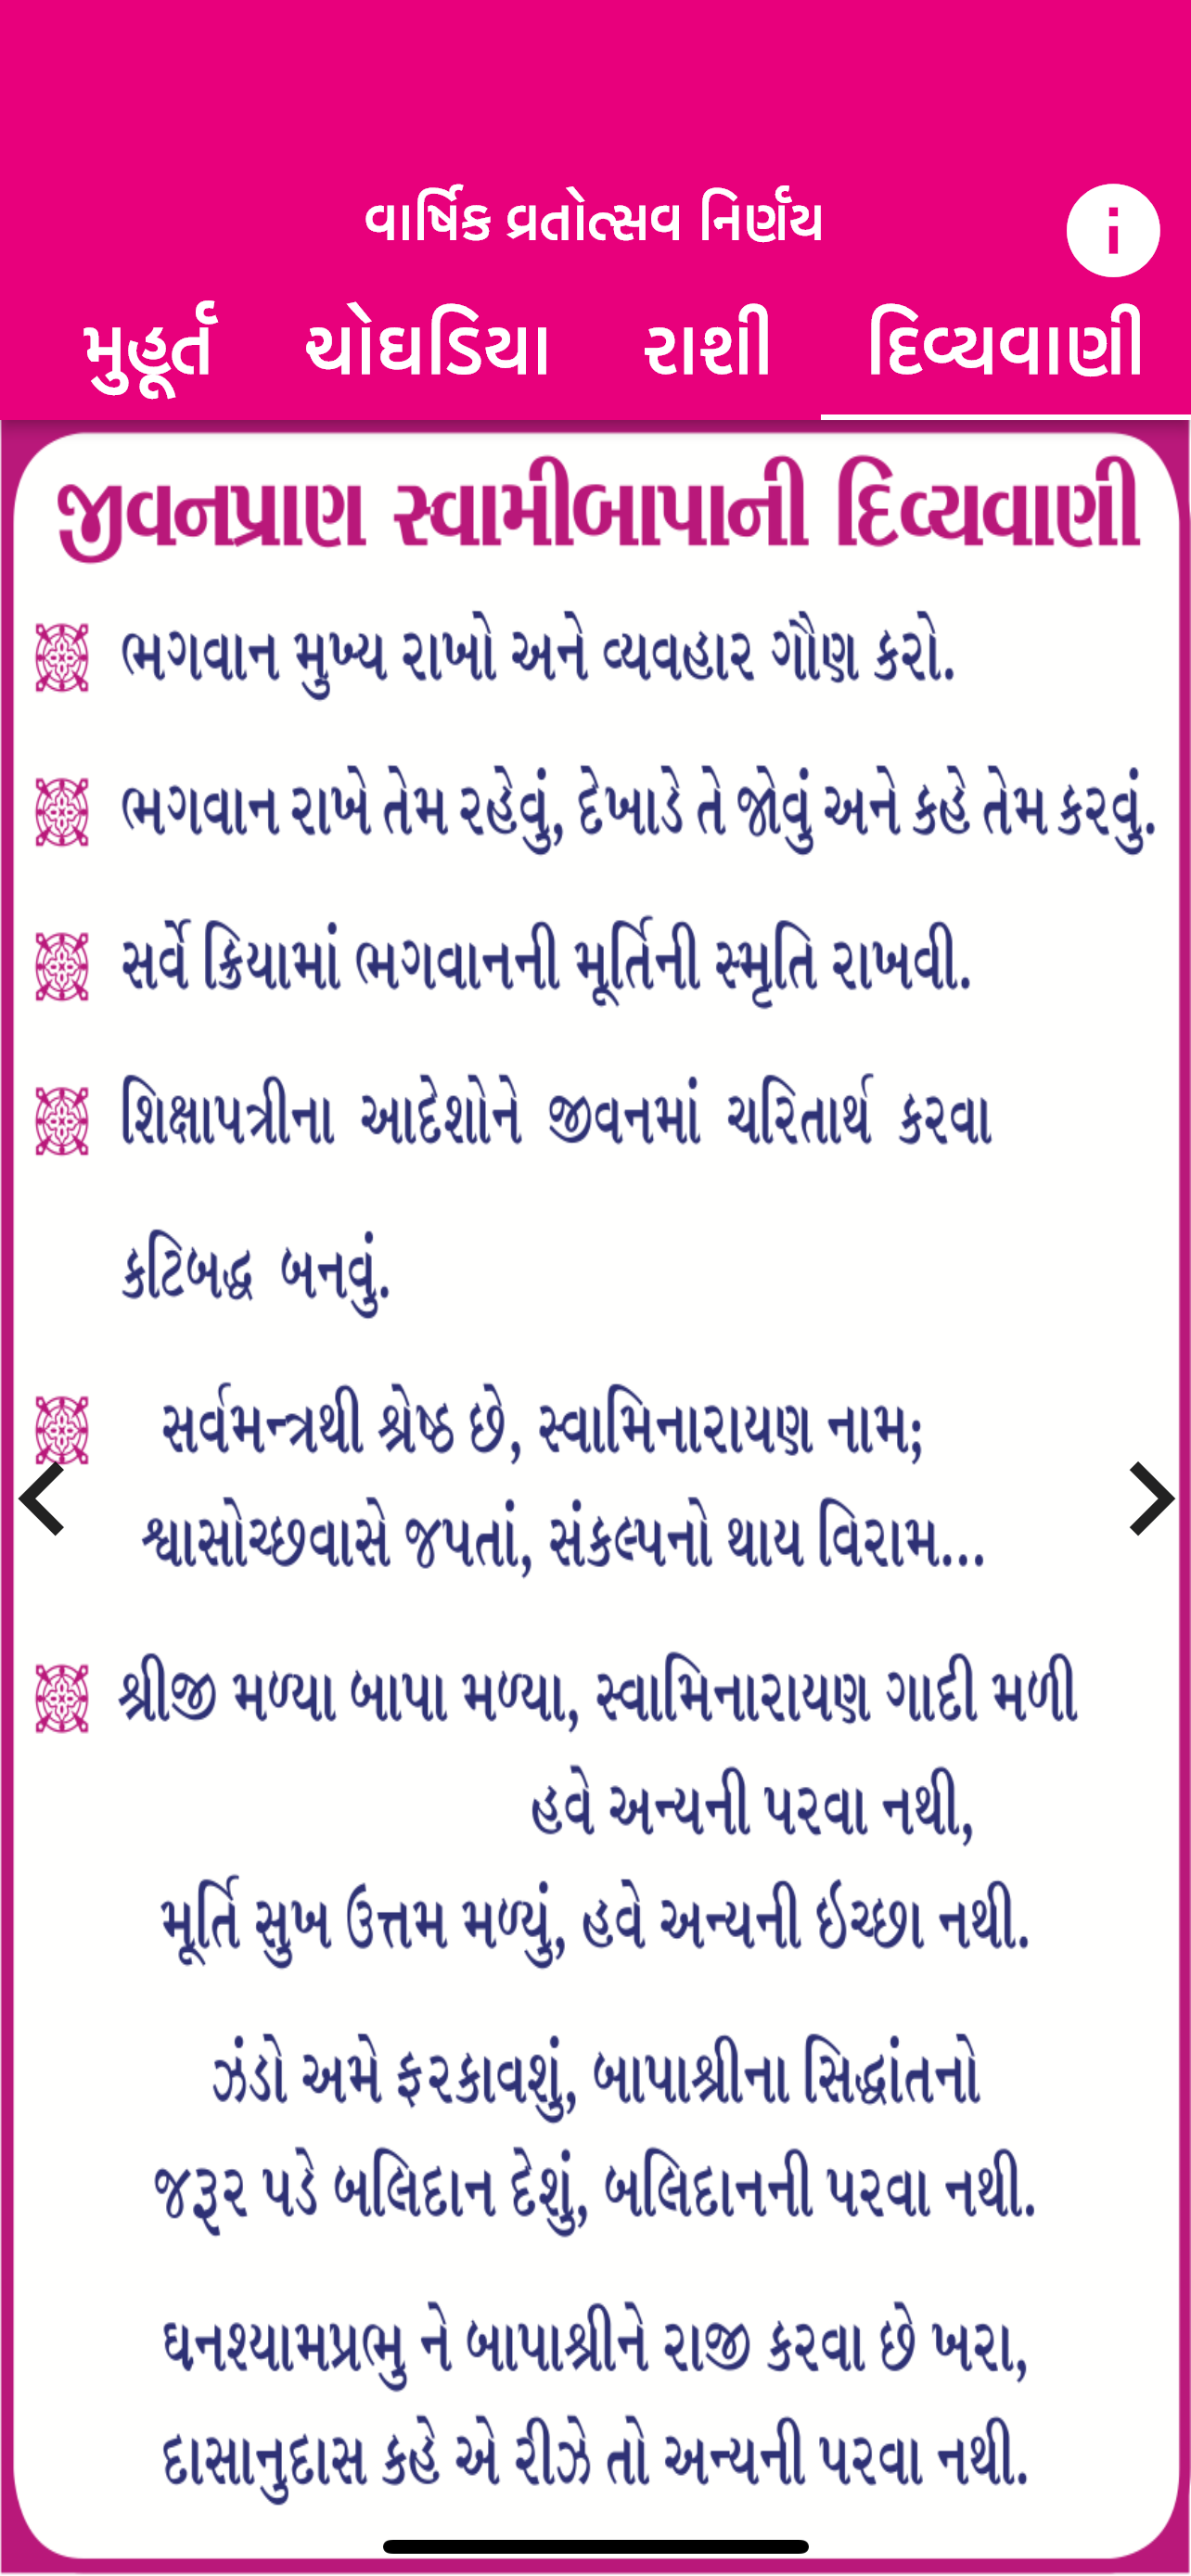 વાર્ષિક વ્રતોત્સવ નિર્ણય
i
મુહૂર્ત ચોઘડિયા રાશી દિવ્યવાણી
જીવનપ્રાણ સ્વામીબાપાની દિવ્યવાણી
ભગવાન મુખ્ય રાખો અને વ્યવહાર ગૌણ કરો.
ભગવાન રાખે તેમ રહેવું, દેખાડે તે જોવું અને કહે તેમ કરવું.
સર્વે ક્રિયામાં ભગવાનની મૂર્તિની સ્મૃતિ રાખવી.
શિક્ષાપત્રીના આદેશોને જીવનમાં ચરિતાર્થ કરવા
કટિબદ્ધ બનવું.
સર્વમન્ત્રથી શ્રેષ્ઠ છે, સ્વામિનારાયણ નામ;
શ્વાસોચ્છવાસે જપતાં, સંકલ્પનો થાય વિરામ...
શ્રીજી મળ્યા બાપા મળ્યા, સ્વામિનારાયણ ગાદી મળી
હવે અન્યની પરવા નથી,
મૂર્તિ સુખ ઉત્તમ મળ્યું, હવે અન્યની ઇચ્છા નથી.
ઝંડો અમે ફરકાવશું, બાપાશ્રીના સિદ્ધાંતનો
જરૂર પડે બલિદાન દેશું, બલિદાનની પરવા નથી.
ઘનશ્યામપ્રભુ ને બાપાશ્રીને રાજી કરવા છે ખરા,
દાસાનુદાસ કહે એ રીઝે તો અન્યની પરવા નથી.